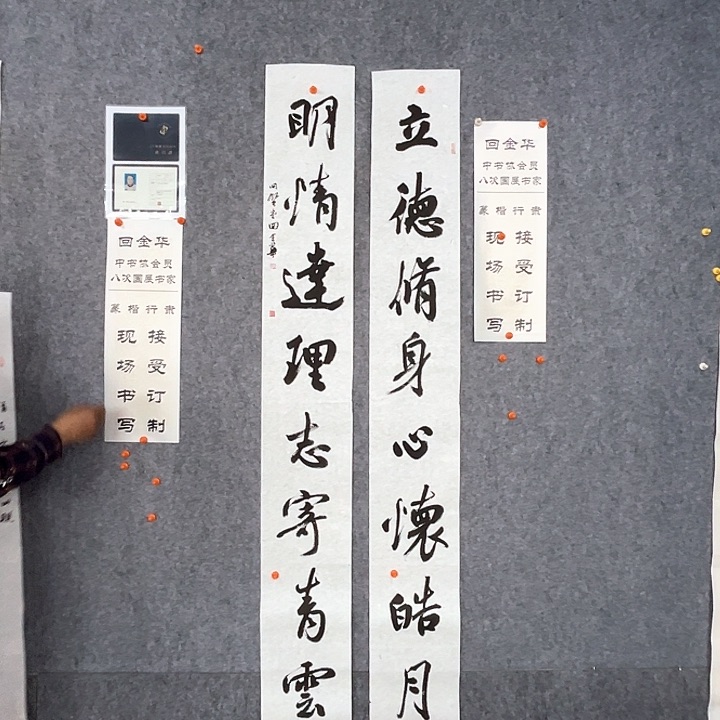 回金华
中书协会员
八次国展书家
篆楷行隶
现场书写
接受订制
立德脩身心懷皓月
明情達理志寄青雲
回金华
中书协会员
八次国展书家
篆楷行隶
现场书写
接受订制